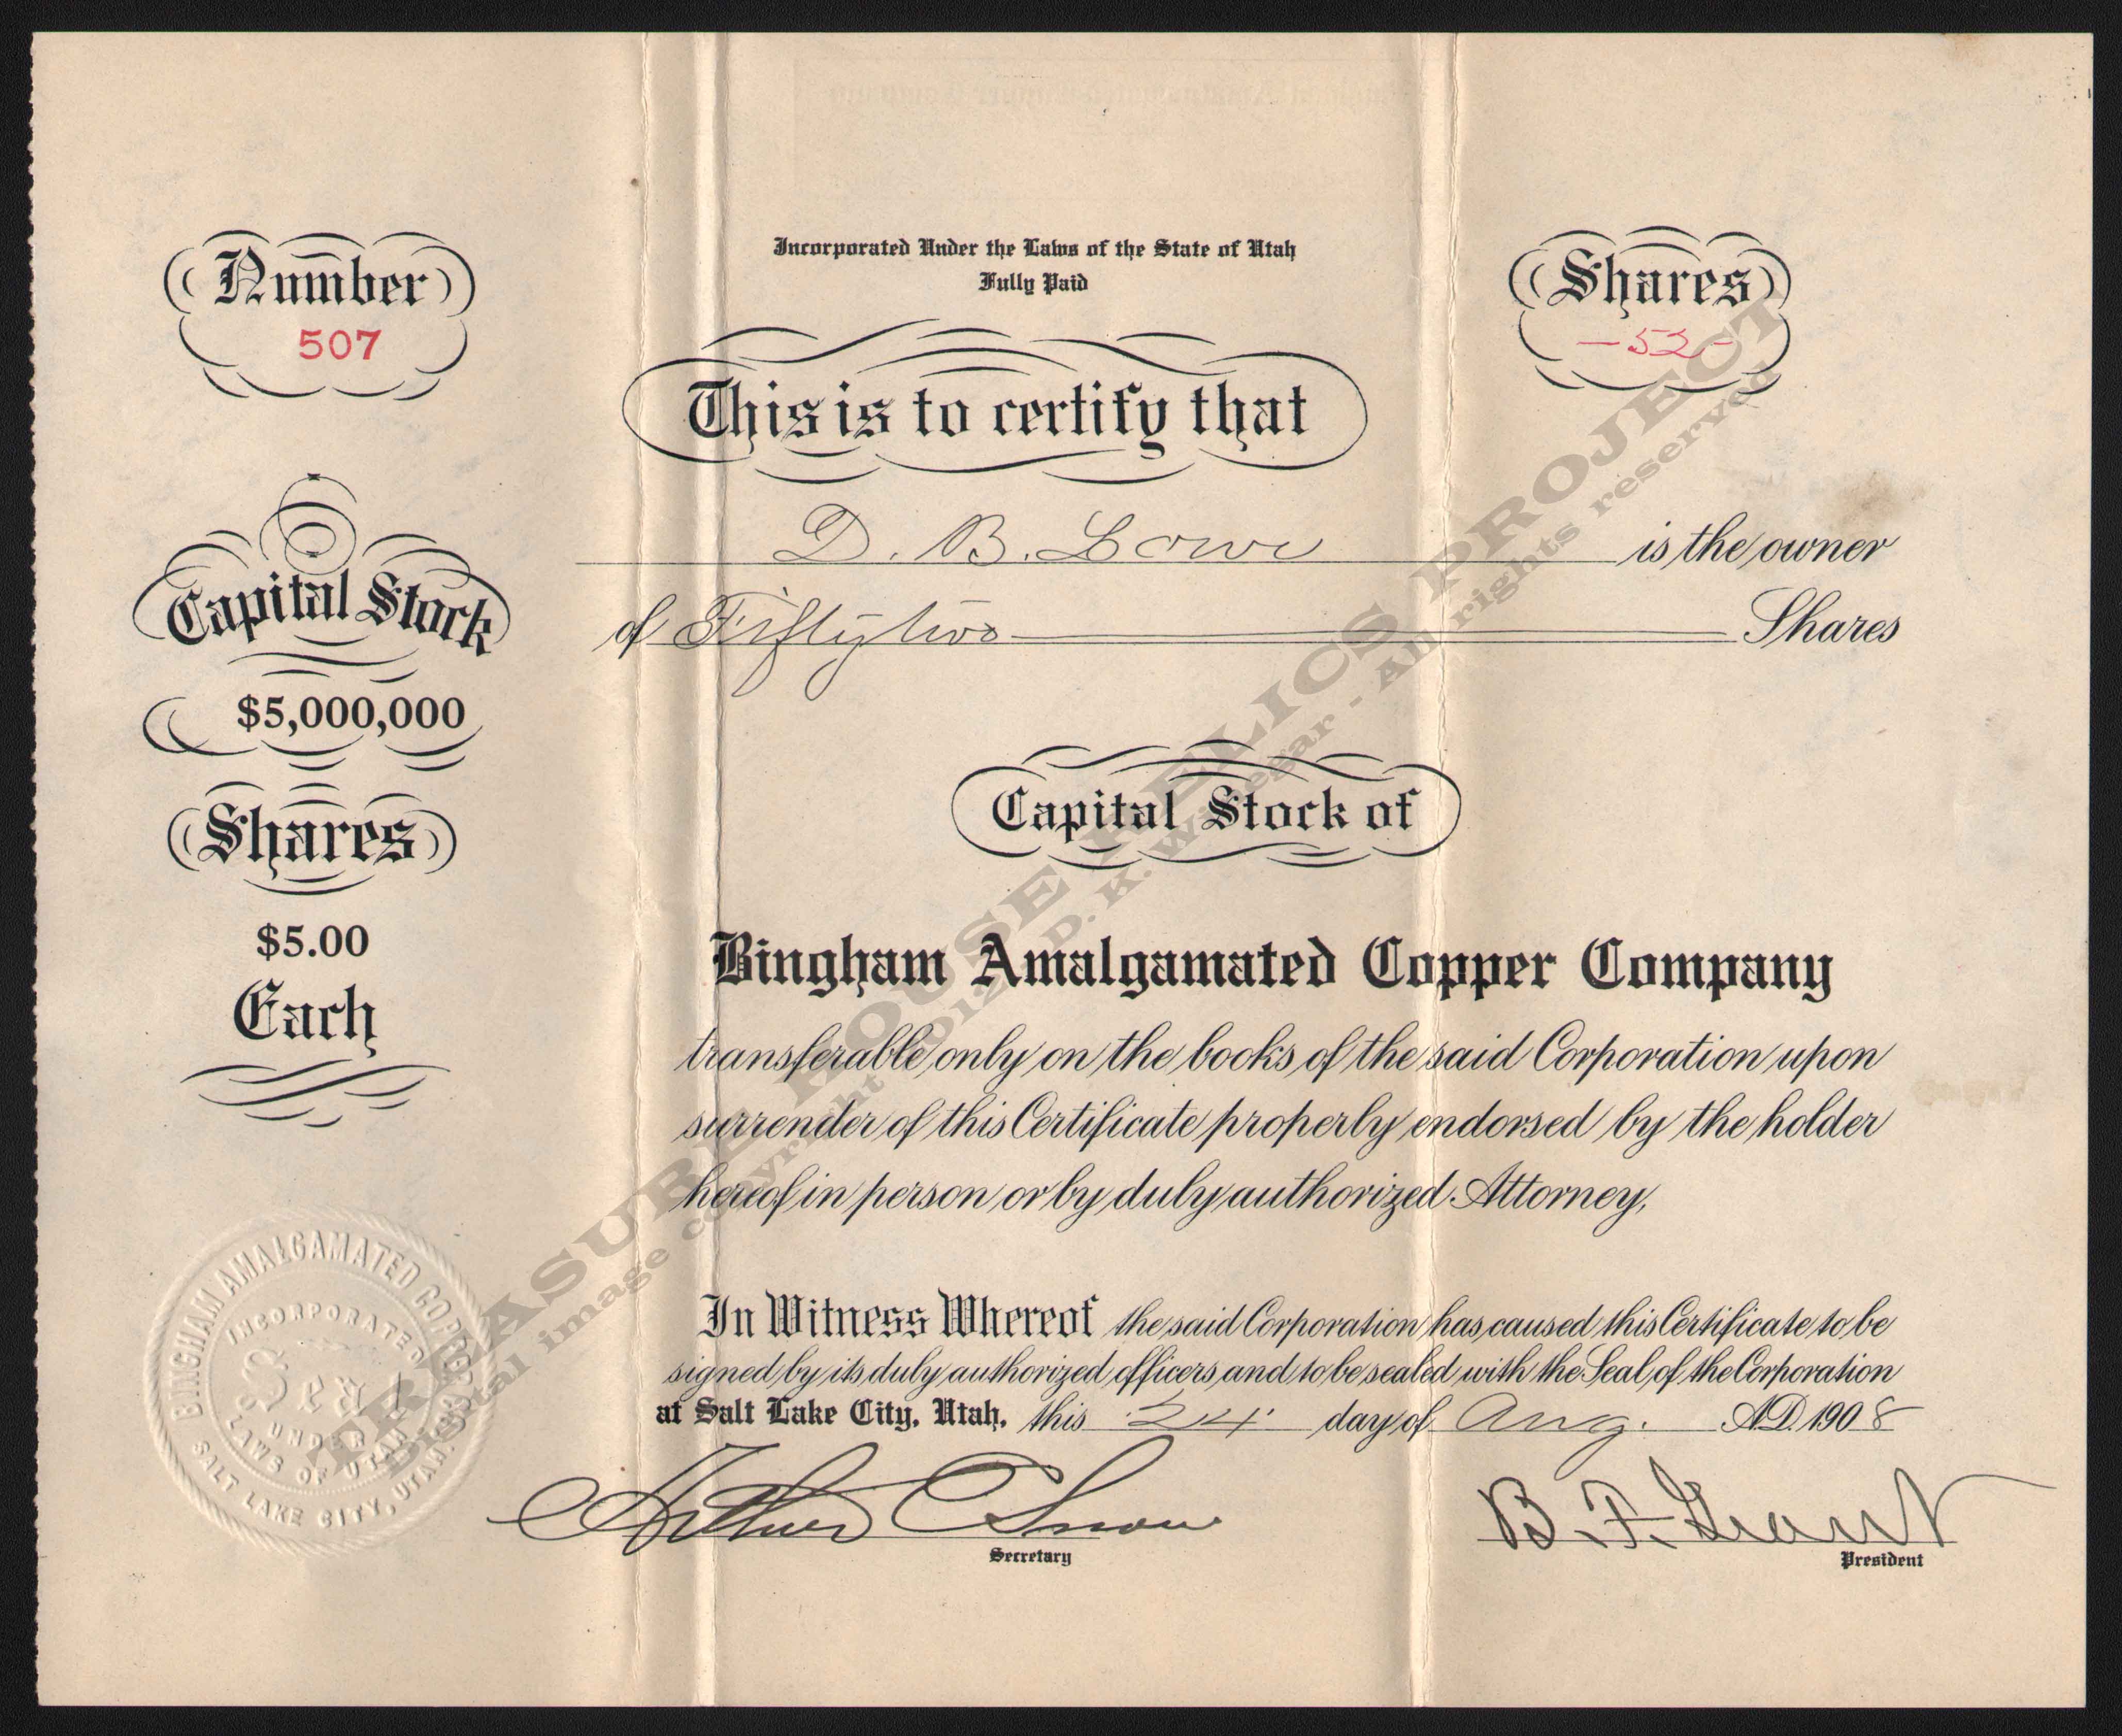 Incorporated Under the Laws of the State of Utah
Fully Paid
Number
507
Shares
-52-
This is to certify that
D. B. Lowe is the owner
of Fifty two Shares
Capital Stock
$5,000,000
Shares
$5.00
Each
Capital Stock of
Bingham Amalgamated Copper Company
transferable only on the books of the said Corporation upon
surrender of this Certificate properly endorsed by the holder
hereof in person or by duly authorized Attorney,
In Witness Whereof the said Corporation has caused this Certificate to be
signed by its duly authorized officers and to be sealed with the Seal of the Corporation
at Salt Lake City, Utah, this 24 day of Aug. A.D. 1908
Arthur C Snow
Secretary
B. F. Grant
President
BINGHAM AMALGAMATED COPPER CO.
SALT LAKE CITY, UTAH.
INCORPORATED
Seal
UNDER
LAWS OF UTAH
TREASURE HOUSE RELICS PROJECT
Digital image copyright 2012 D. K. Winegar - All rights reserved